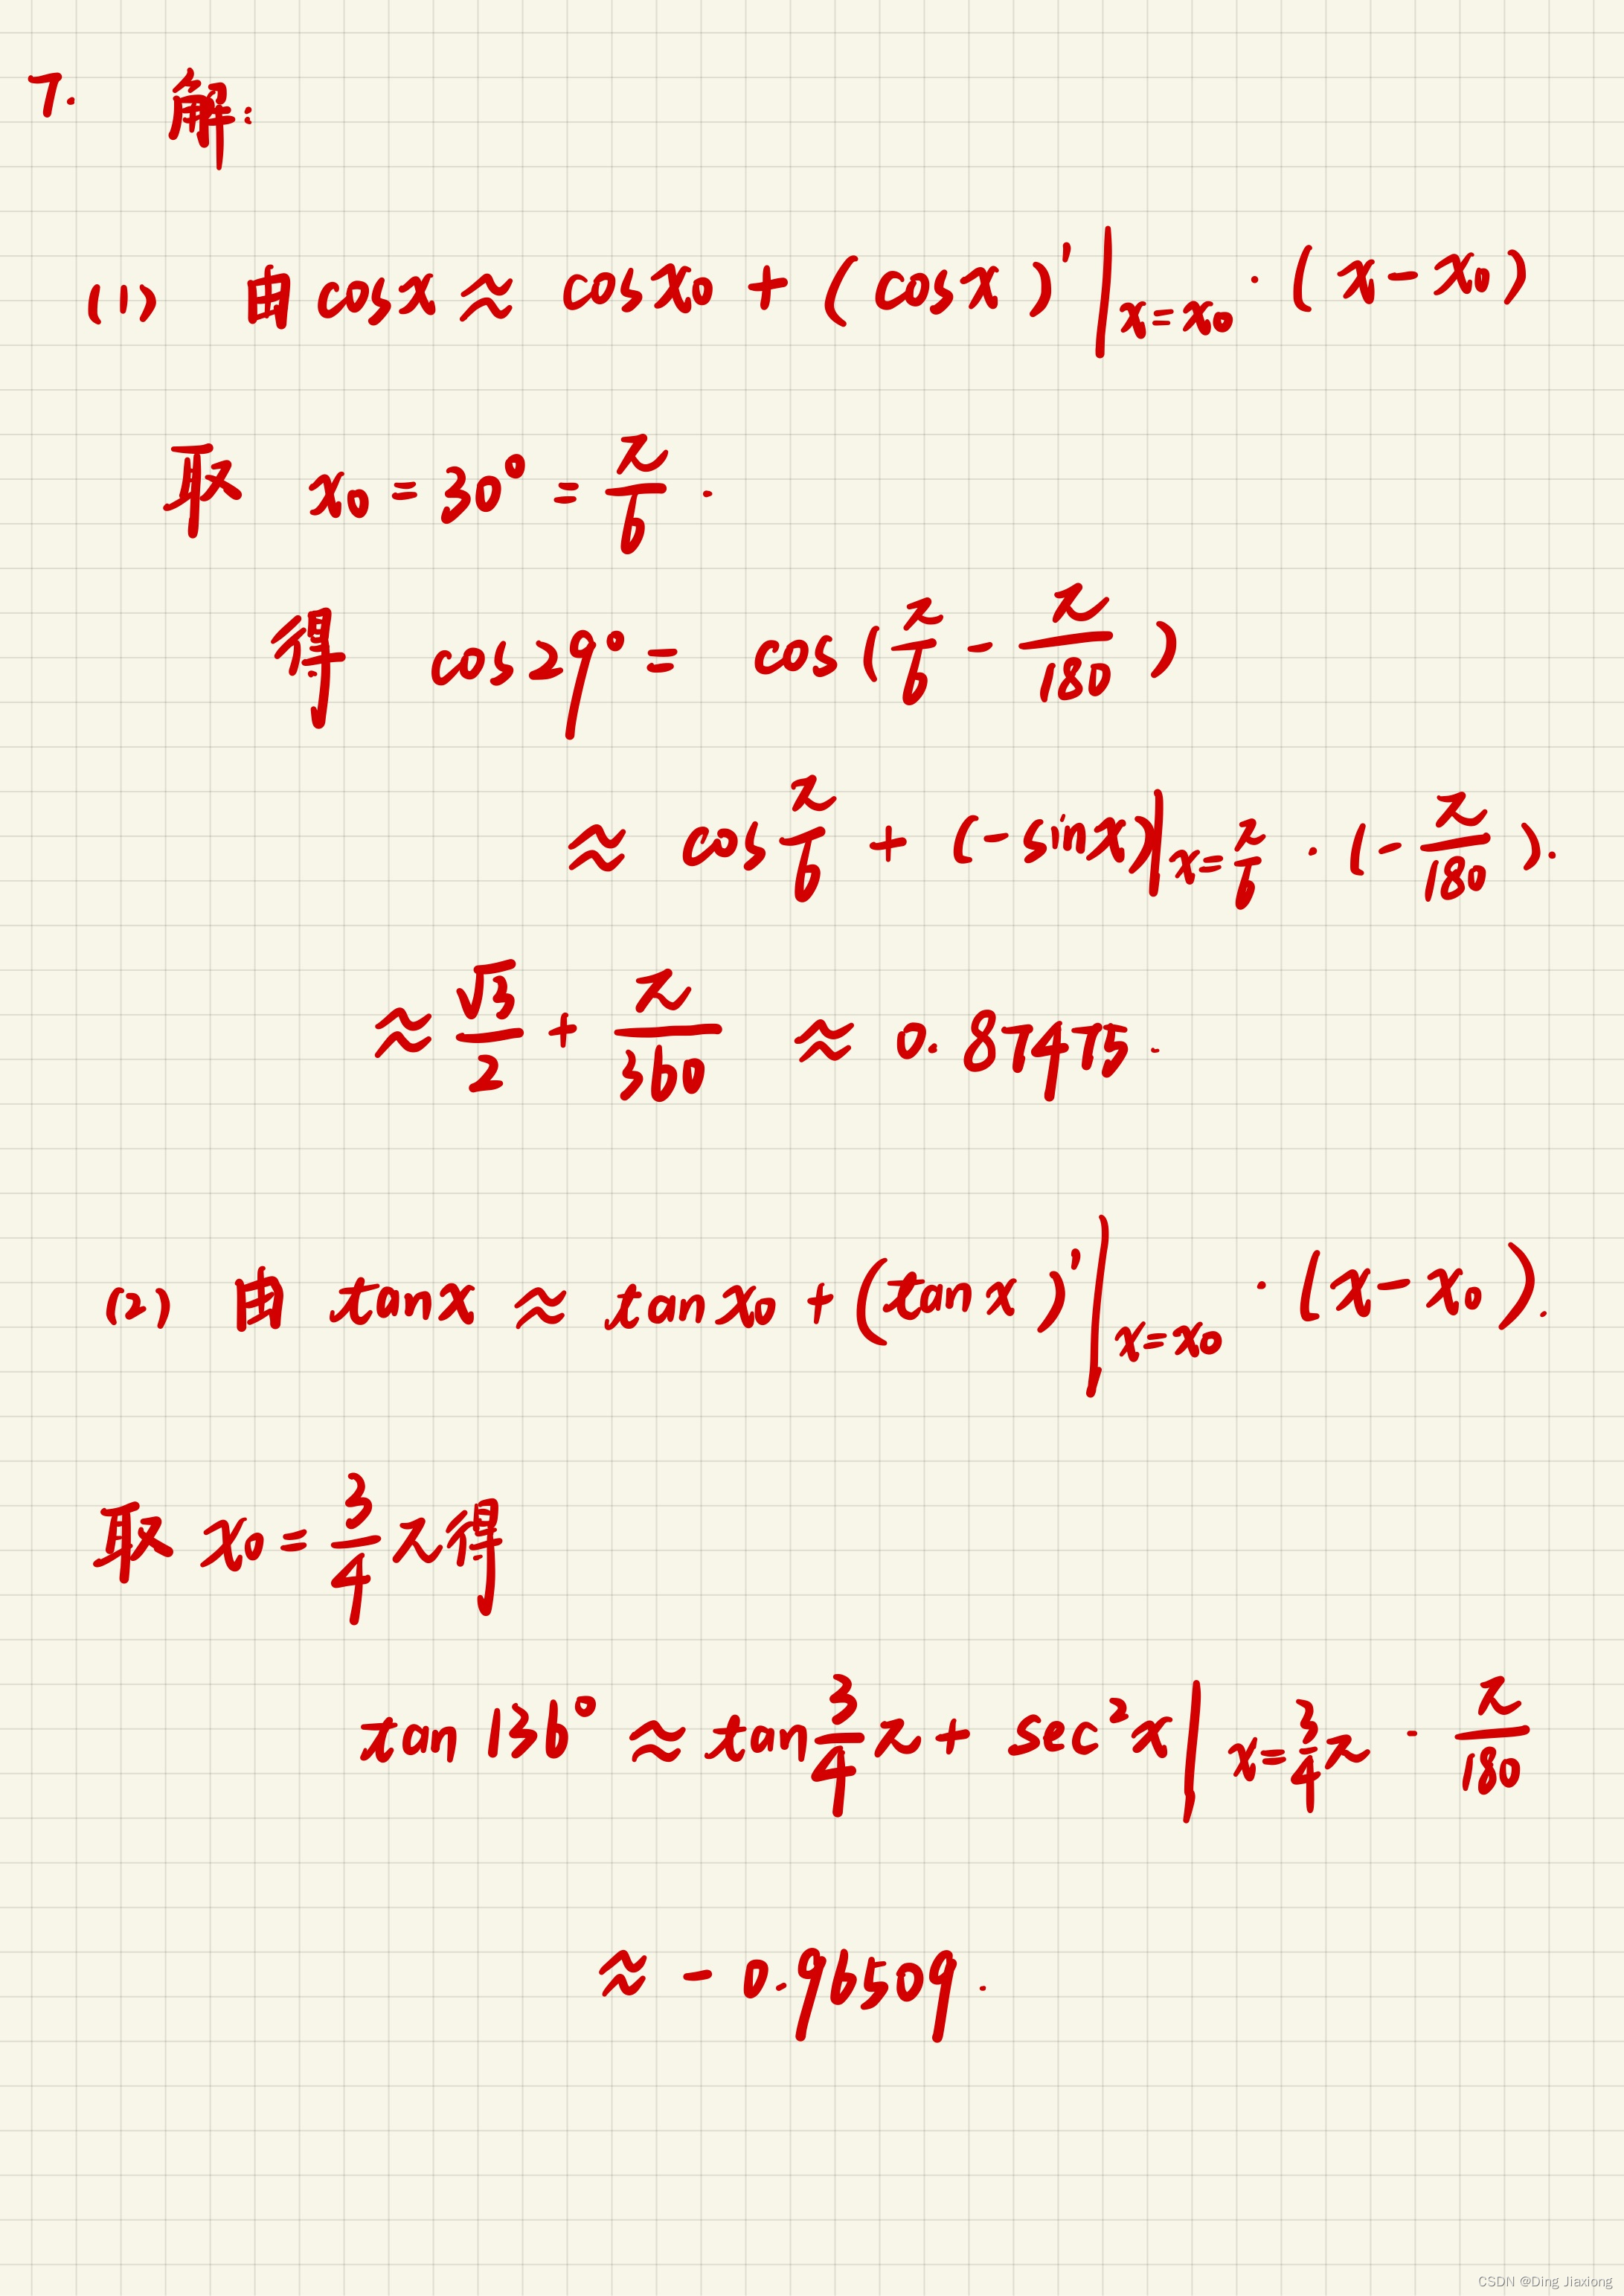 7. 解:
(1) 由 cosx ≈ cosx₀ + (cosx)'|ₓ₌ₓ₀ · (x - x₀)
取 x₀ = 30° = π/6 .
得 cos29° = cos(π/6 - π/180)
≈ cos π/6 + (-sinx)|ₓ₌π/6 · (- π/180).
≈ √3/2 + π/360 ≈ 0.87475.
(2) 由 tanx ≈ tanx₀ + (tanx)'|ₓ₌ₓ₀ · (x - x₀).
取 x₀ = 3/4 π 得
tan136° ≈ tan 3/4 π + sec²x|ₓ₌3/4 π · π/180
≈ - 0.96509.
CSDN @Ding Jiaxiong